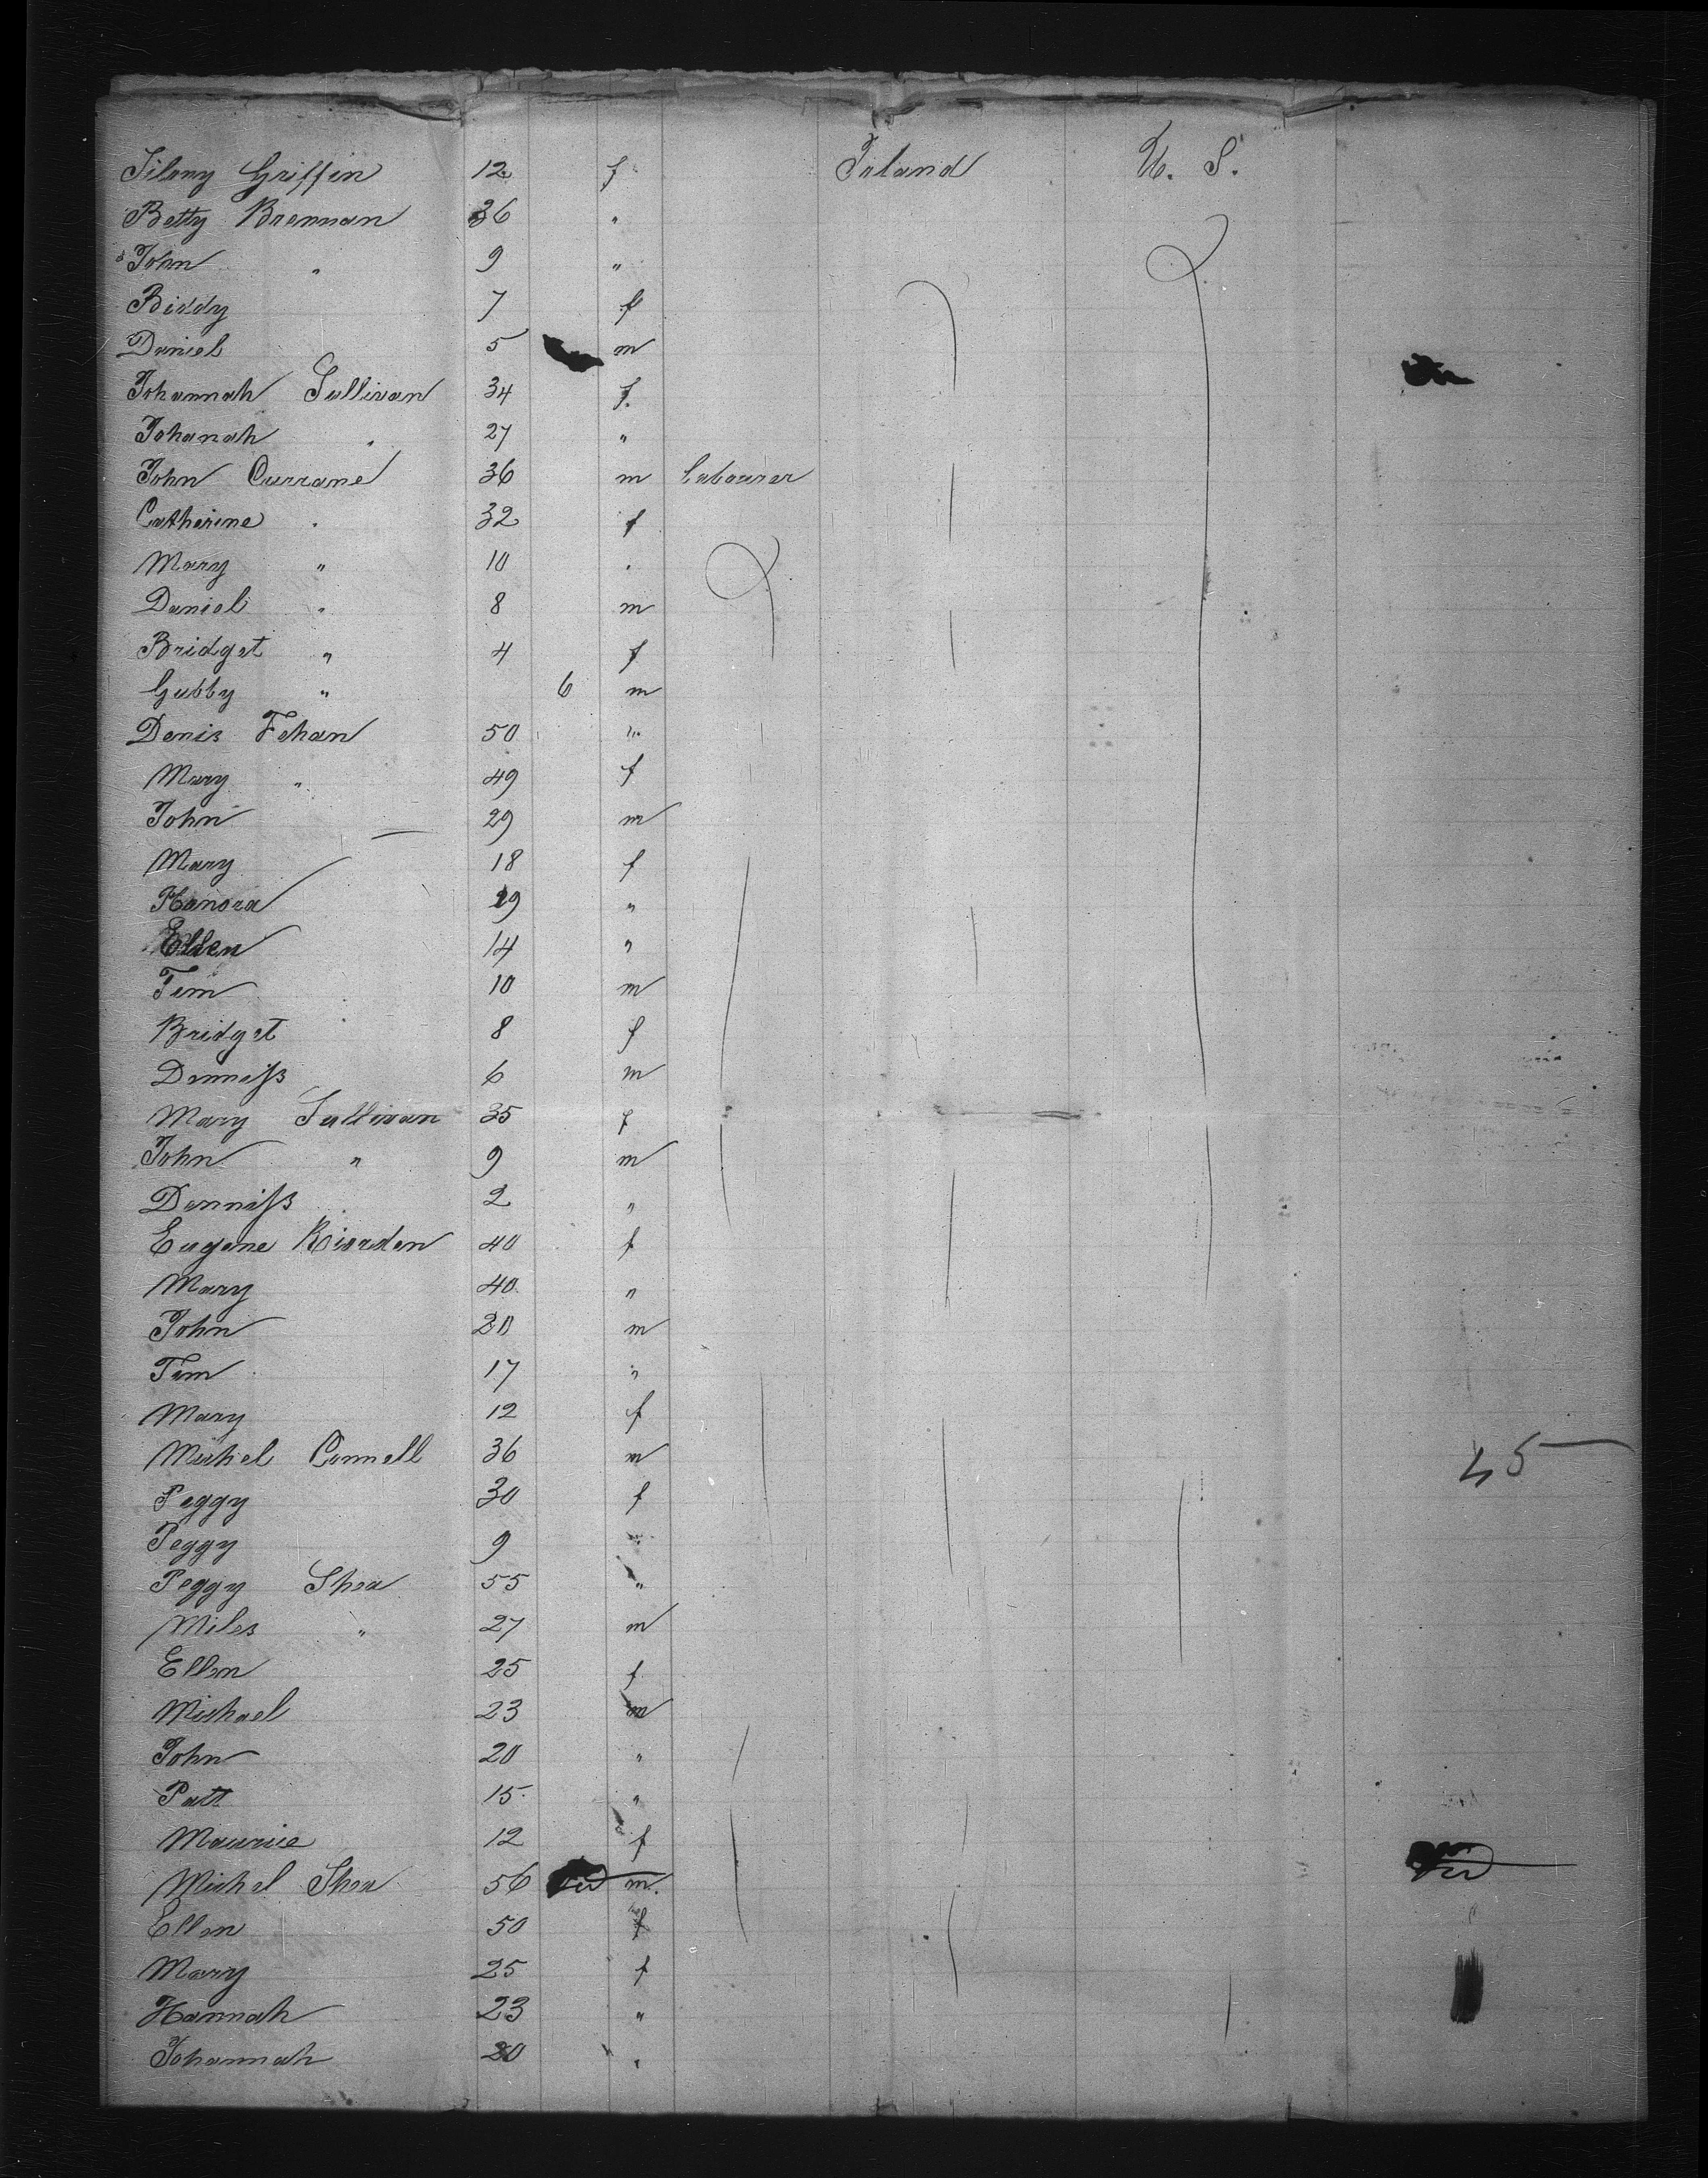 Griffin 12 f Irland U. S.
Betty Brennan 36 "
John " 9 "
Biddy 7 f
Daniel 5 m
Johannah Sullivan 34 f.
Johanah " 27 "
John Currane 36 m Labourer
Catherine " 32 f
Mary " 10 "
Daniel " 8 m
Bridget " 4 f
Gubby " 6 m
Denis Fehan 50 "
Mary " 49 f
John 29 m
Mary 18 f
Hanora 19 "
Ellen 14 "
Tim 10 m
Bridget 8 f
Denniss 6 m
Mary Sullivan 35 f
John " 9 m
Denniss 2 "
Eugene Riordan 40 f
Mary 40 "
John 20 m
Tim 17 "
Mary 12 f
Michel Connell 36 m 45
Peggy 30 f
Peggy 9 "
Peggy Shea 55 "
Miles " 27 m
Ellen 25 f
Michael 23 m
John 20 "
Patt 15 "
Maurice 12 f
Michel Shea 56 m.
Ellen 50 f
Mary 25 f
Hannah 23 "
Johannah 20 "